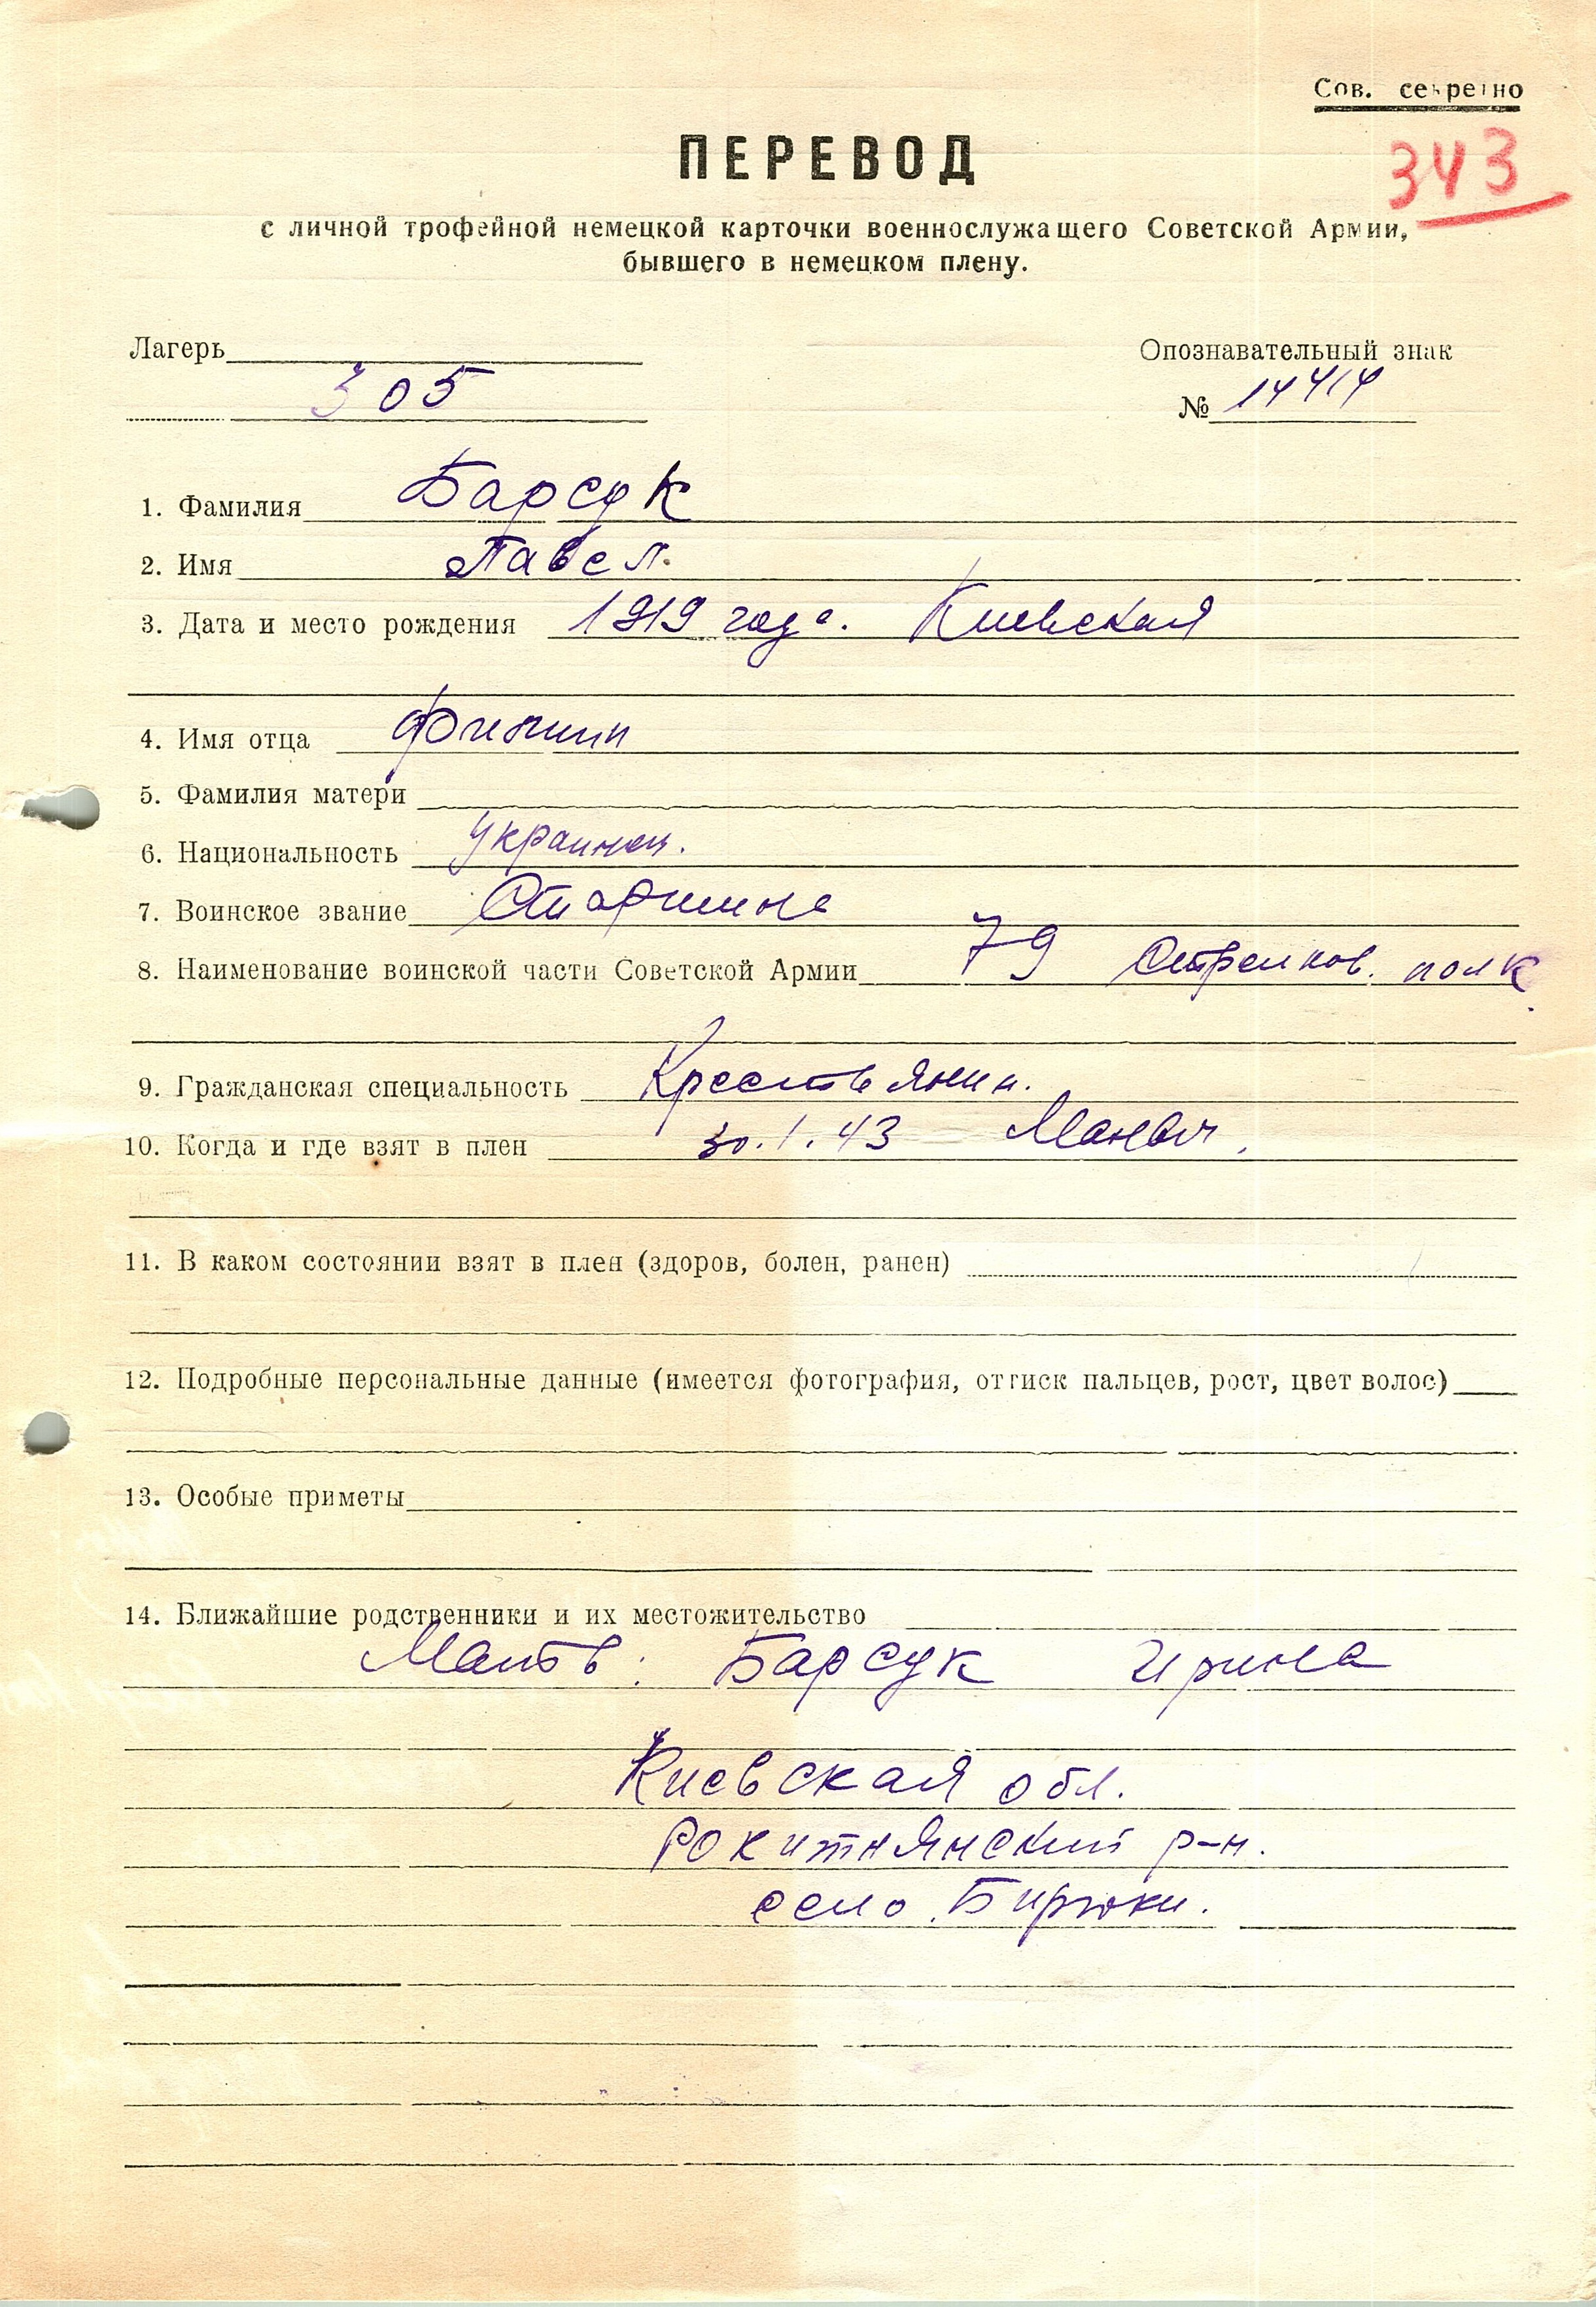 Сов. секретно
ПЕРЕВОД
343
с личной трофейной немецкой карточки военнослужащего Советской Армии,
бывшего в немецком плену.
Лагерь
305
Опознавательный знак
№ 14414
1. Фамилия Барсук
2. Имя Павел.
3. Дата и место рождения 1919 года. Киевская
4. Имя отца Филипп
5. Фамилия матери
6. Национальность Украинец.
7. Воинское звание Старшина
8. Наименование воинской части Советской Армии 79 Стрелков. полк.
9. Гражданская специальность Крестьянин.
10. Когда и где взят в плен 30.1.43
11. В каком состоянии взят в плен (здоров, болен, ранен)
12. Подробные персональные данные (имеется фотография, оттиск пальцев, рост, цвет волос)
13. Особые приметы
14. Ближайшие родственники и их местожительство
Мать: Барсук Ирина
Киевская обл.
Рокитнянский р-н.
село Бирюки.